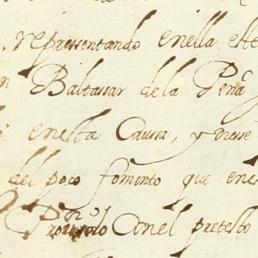 , representando enella este
n Baltassar dela Peña
enesta Causa, y dresse
del poco fomento que ene
Conel pretesto